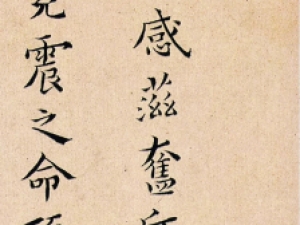 感茲奮
震之命